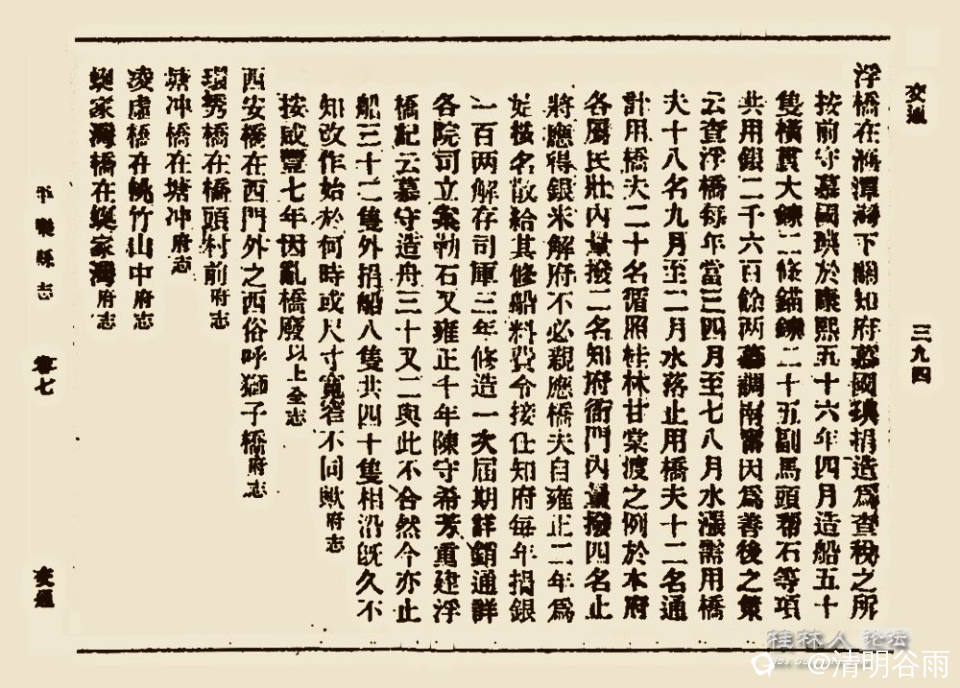 交通
三九四
浮橋在海潭灘下關知府慕國琠捐造爲查稅之所
按前守慕國琠於康熙五十六年四月造船五十
隻橫貫大鍊二條錨鍊二十五副馬頭帮石等項
共用銀二千六百餘两慕調南寗因爲善後之策
云查浮橋每年當三四月至七八月水漲需用橋
夫十八名九月至二月水落止用橋夫十二名通
計用橋夫二十名循照桂林甘棠渡之例於本府
各屬民壯內量撥二名知府衙門內量撥四名止
將應得銀米解府不必親應橋夫自雍正二年爲
始按名散給其修船料費令接任知府每年捐銀
一百两解存司庫三年修造一次屆期詳銷通詳
各院司立案勒石又雍正十年陳守希芳重建浮
橋記云慕守造舟三十又二與此不合然今亦止
船三十二隻外捐船八隻共四十隻相沿旣久不
知改作始於何時或尺寸寬窄不同歟府志
按咸豐七年因亂橋廢以上全志
西安橋在西門外之西俗呼獅子橋府志
瑞秀橋在橋頭村前府志
塘冲橋在塘冲府志
凌虛橋在桃竹山中府志
家灣橋在家灣府志
平樂縣志
卷七
交通
桂林人论坛
@清明谷雨